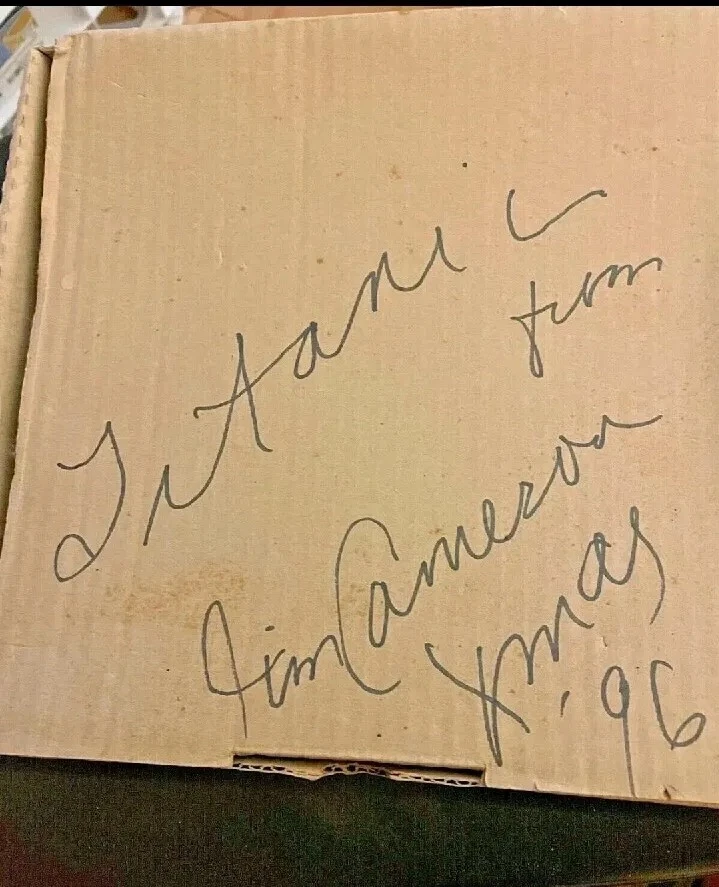 Titanic
from
Jim Cameron
Xmas
'96